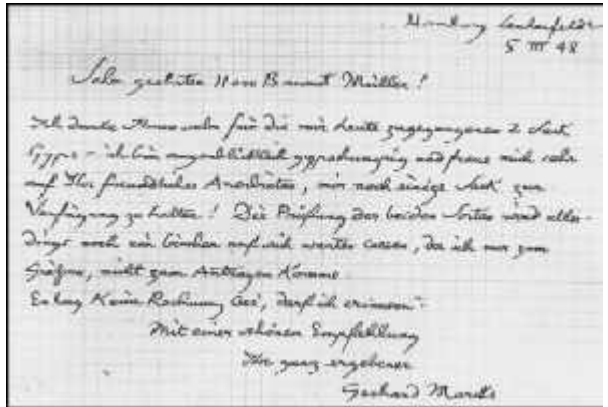 Hamburg
5 III 48
Sehr geehrter Herr Baurat Müller!
Ich danke Ihnen sehr für die mir heute zugegangenen 2 Sack
Gyps – ich bin augenblicklich gypshungrig und freue mich sehr
auf Ihr freundliches Anerbieten, mir noch einige Sack zur
Verfügung zu halten! Die Prüfung der beiden Sorten wird aller-
dings noch ein bischen auf sich warten lassen, da ich nur zum
Gießen, nicht zum Antragen komme
Es lag keine Rechnung bei, darf ich erinnern?
Mit einer schönen Empfehlung
Ihr ganz ergebener
Gerhard Marcks